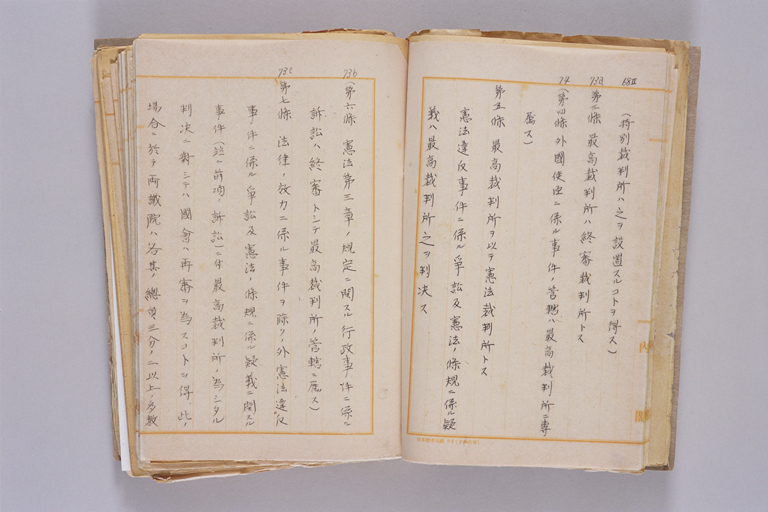 68Ⅱ
(特別裁判所ハ之ヲ設置スルコトヲ得ス)
73a
第三條 最高裁判所ハ終審裁判所トス
74
(第四條 外國使臣ニ係ル事件ノ管轄ハ最高裁判所ニ專
屬ス)
第五條 最高裁判所ヲ以テ憲法裁判所トス
憲法違反事件ニ係ル爭訟及憲法ノ條規ニ係ル疑
義ハ最高裁判所之ヲ判決ス
73b
(第六條 憲法第三章ノ規定ニ関スル行政事件ニ係ル
訴訟ハ終審トシテ最高裁判所ノ管轄ニ屬ス)
73c
第七條 法律ノ效力ニ係ル事件ヲ除クノ外憲法違反
事件ニ係ル爭訟及憲法ノ條規ニ係ル疑義ニ関スル
事件(竝前項ノ訴訟)ニ付最高裁判所ノ為シタル
判決ニ對シテハ國會ハ再審ヲ為スコトヲ得 此ノ
場合ニ於テ両議院ハ各其ノ總員三分ノ二以上ノ多數
内閣